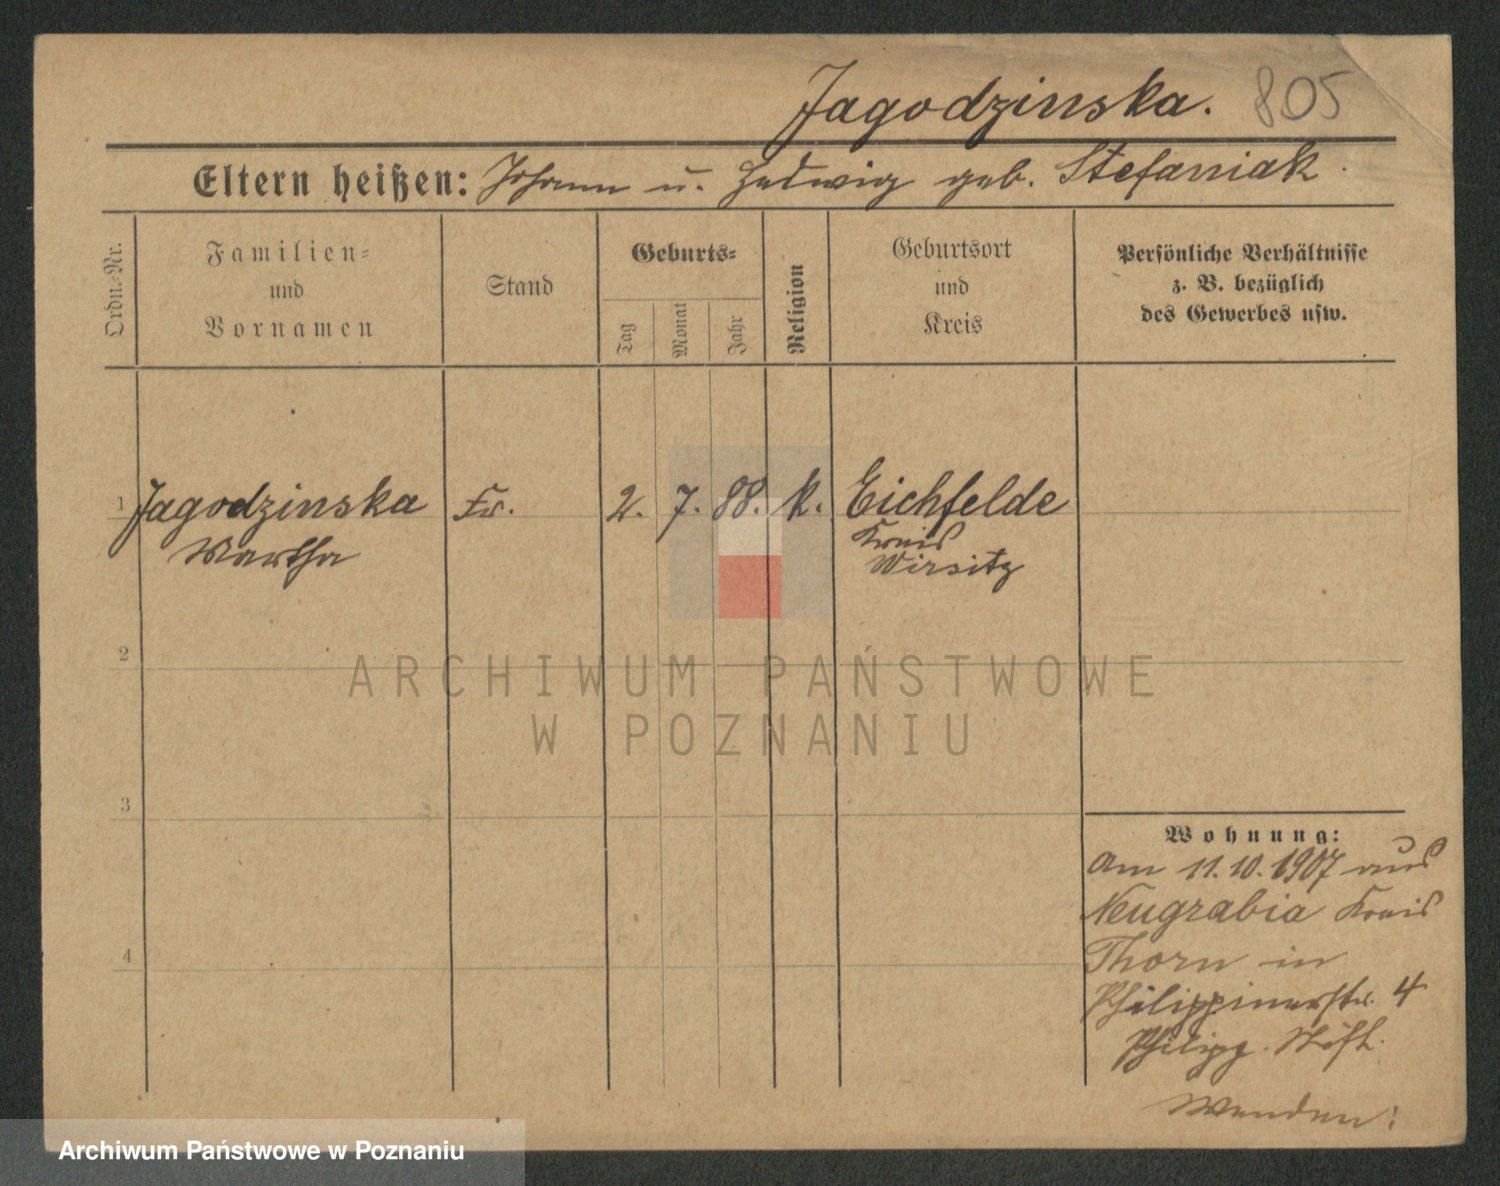 Jagodzinska. 805
Eltern heißen: Johann u. Hedwig geb. Stefaniak.
Ordn.-Nr.
Familien-
und
Vornamen
Stand
Geburts-
Tag
Monat
Jahr
Religion
Geburtsort
und
Kreis
Persönliche Verhältnisse
z. B. bezüglich
des Gewerbes usw.
1 Jagodzinska Fr. 2. 7. 88. k. Eichfelde
Martha Kreis
Wirsitz
2
ARCHIWUM PAŃSTWOWE
W POZNANIU
3
Wohnung:
Am 11.10.1907 aus
Neugrabia Kreis
4
Thorn in
Philippinerstr. 4
Philipp. Stift.
Wenden!
Archiwum Państwowe w Poznaniu